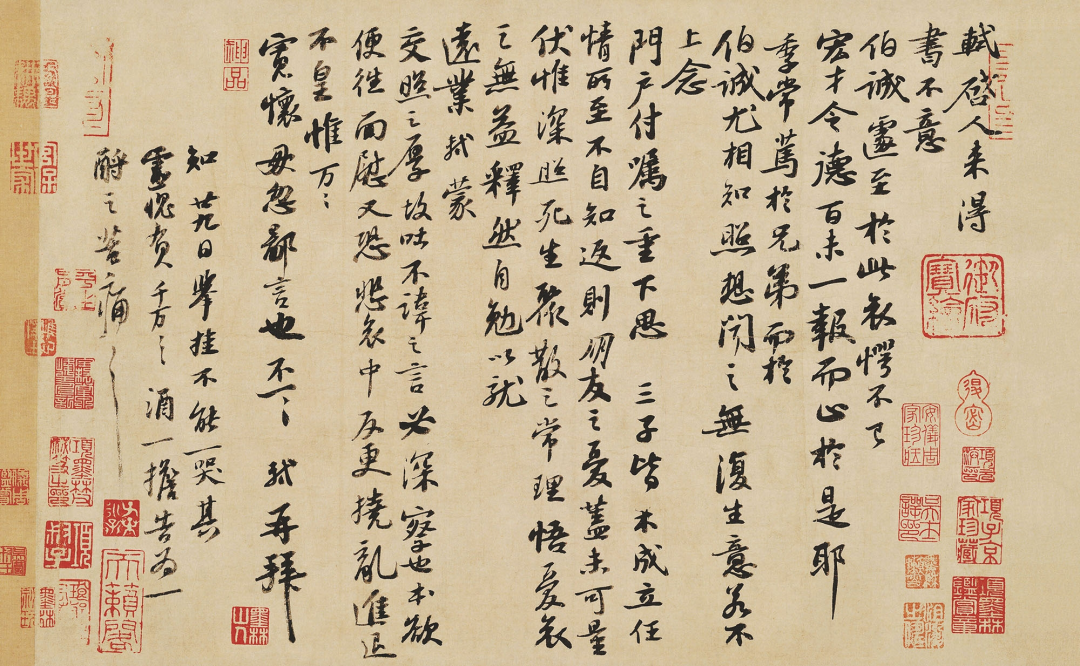 軾啓人来得
書不意
伯誠遽至於此哀愕不已
宏才令德百未一報而止於是耶
季常篤於兄弟而於
伯誠尤相知照想聞之無復生意若不
上念
門户付囑之重下思三子皆未成立任
情所至不自知返則朋友之憂蓋未可量
伏惟深照死生聚散之常理悟憂哀
之無益釋然自勉以就
遠業軾蒙
交照之厚故吐不諱之言必深察也本欲
便往面慰又恐悲哀中反更撓亂進退
不皇惟万万
寬懷毋忽鄙言也不一一軾再拜
知廿九日舉掛不能一哭其
靈愧負千万千万酒一擔告为一
酹之苦痛
神品
御府寶繪
項子京家珍藏
墨林山人
天籟閣
安儀周家珍藏